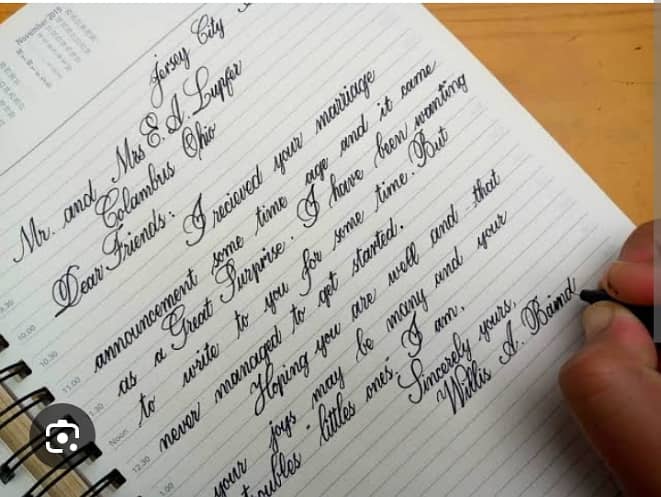 November 2015
Jersey City
Mr. and Mrs E. A. Lupfer
Colambus Ohio
Dear Friends:
I recieved your marriage
announcement some time age and it came
as a Great Surprise. I have been wanting
to write to you for some time. But
never managed to get started.
Hoping you are well and that
your joys may be many and your
troubles littles ones. I am,
Sincerely yours,
Willis A. Baird
9.30
10.00
10.30
11.00
Noon
12.30
1.00